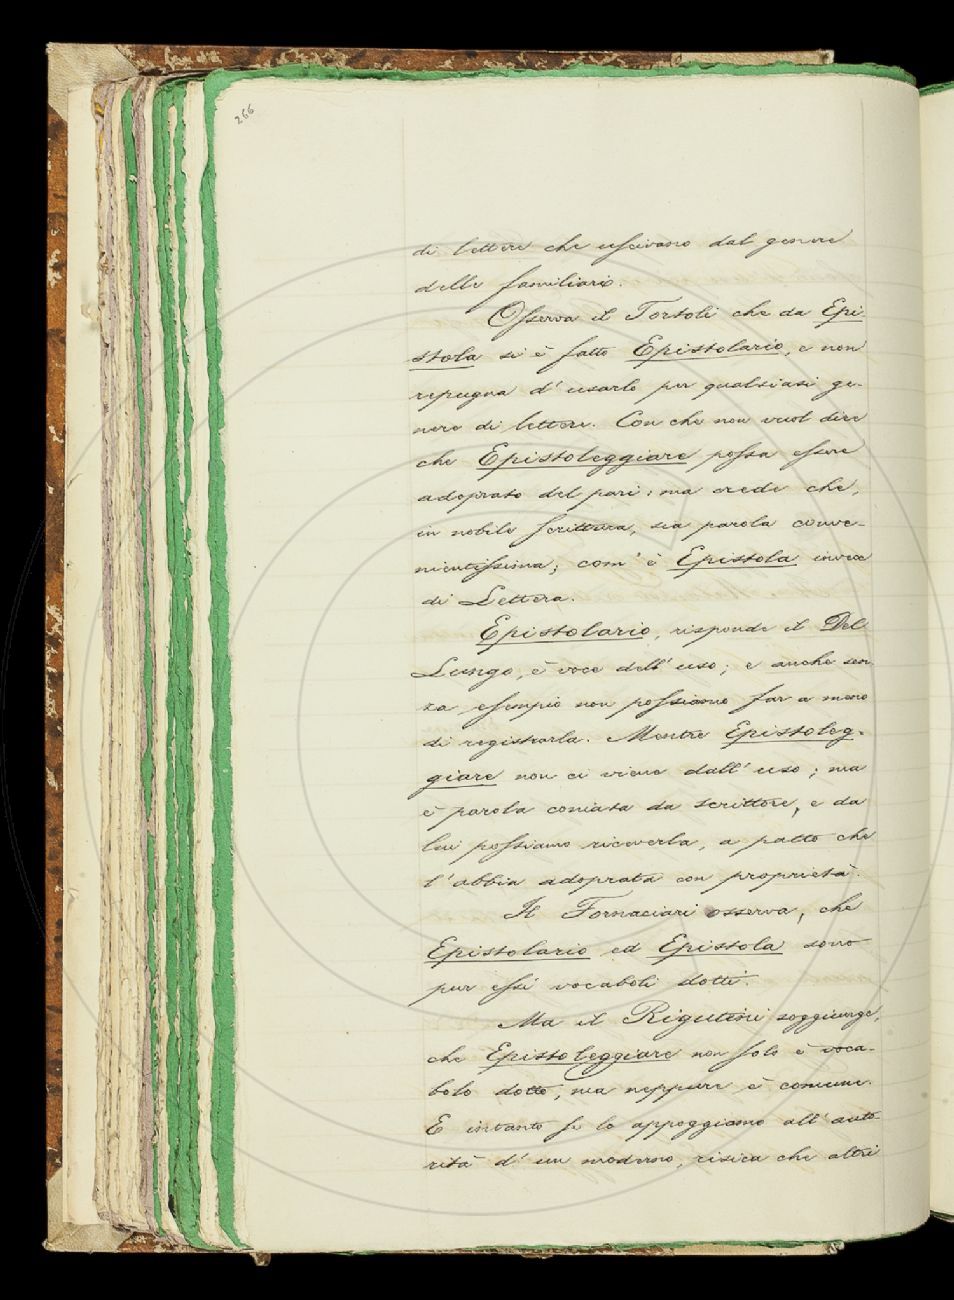 266
di lettere che uscivano dal genere
delle familiari.
Osserva il Tortoli che da Epi
stola si è fatto Epistolario, e non
repugna d'usarlo per qualsiasi ge-
nere di lettere. Con che non vuol dire
che Epistoleggiare possa essere
adoprato del pari; ma crede che,
in nobile scrittura, sia parola conve-
nientissima; com'è Epistola invece
di Lettera.
Epistolario, risponde il Del
Lungo, è voce dell'uso; e anche sen
za esempio non possiamo far a meno
di registrarla. Mentre Epistoleg-
giare non ci viene dall'uso; ma
è parola coniata da scrittore, e da
lui possiamo riceverla, a patto che
l'abbia adoprata con proprietà.
Il Fornaciari osserva, che
Epistolario ed Epistola sono
pur essi vocaboli dotti.
Ma il Rigutini soggiunge,
che Epistoleggiare non solo è voca-
bolo dotto; ma neppure è comune.
E intanto se lo appoggiamo all'auto
rità d'un moderno, risica che altri